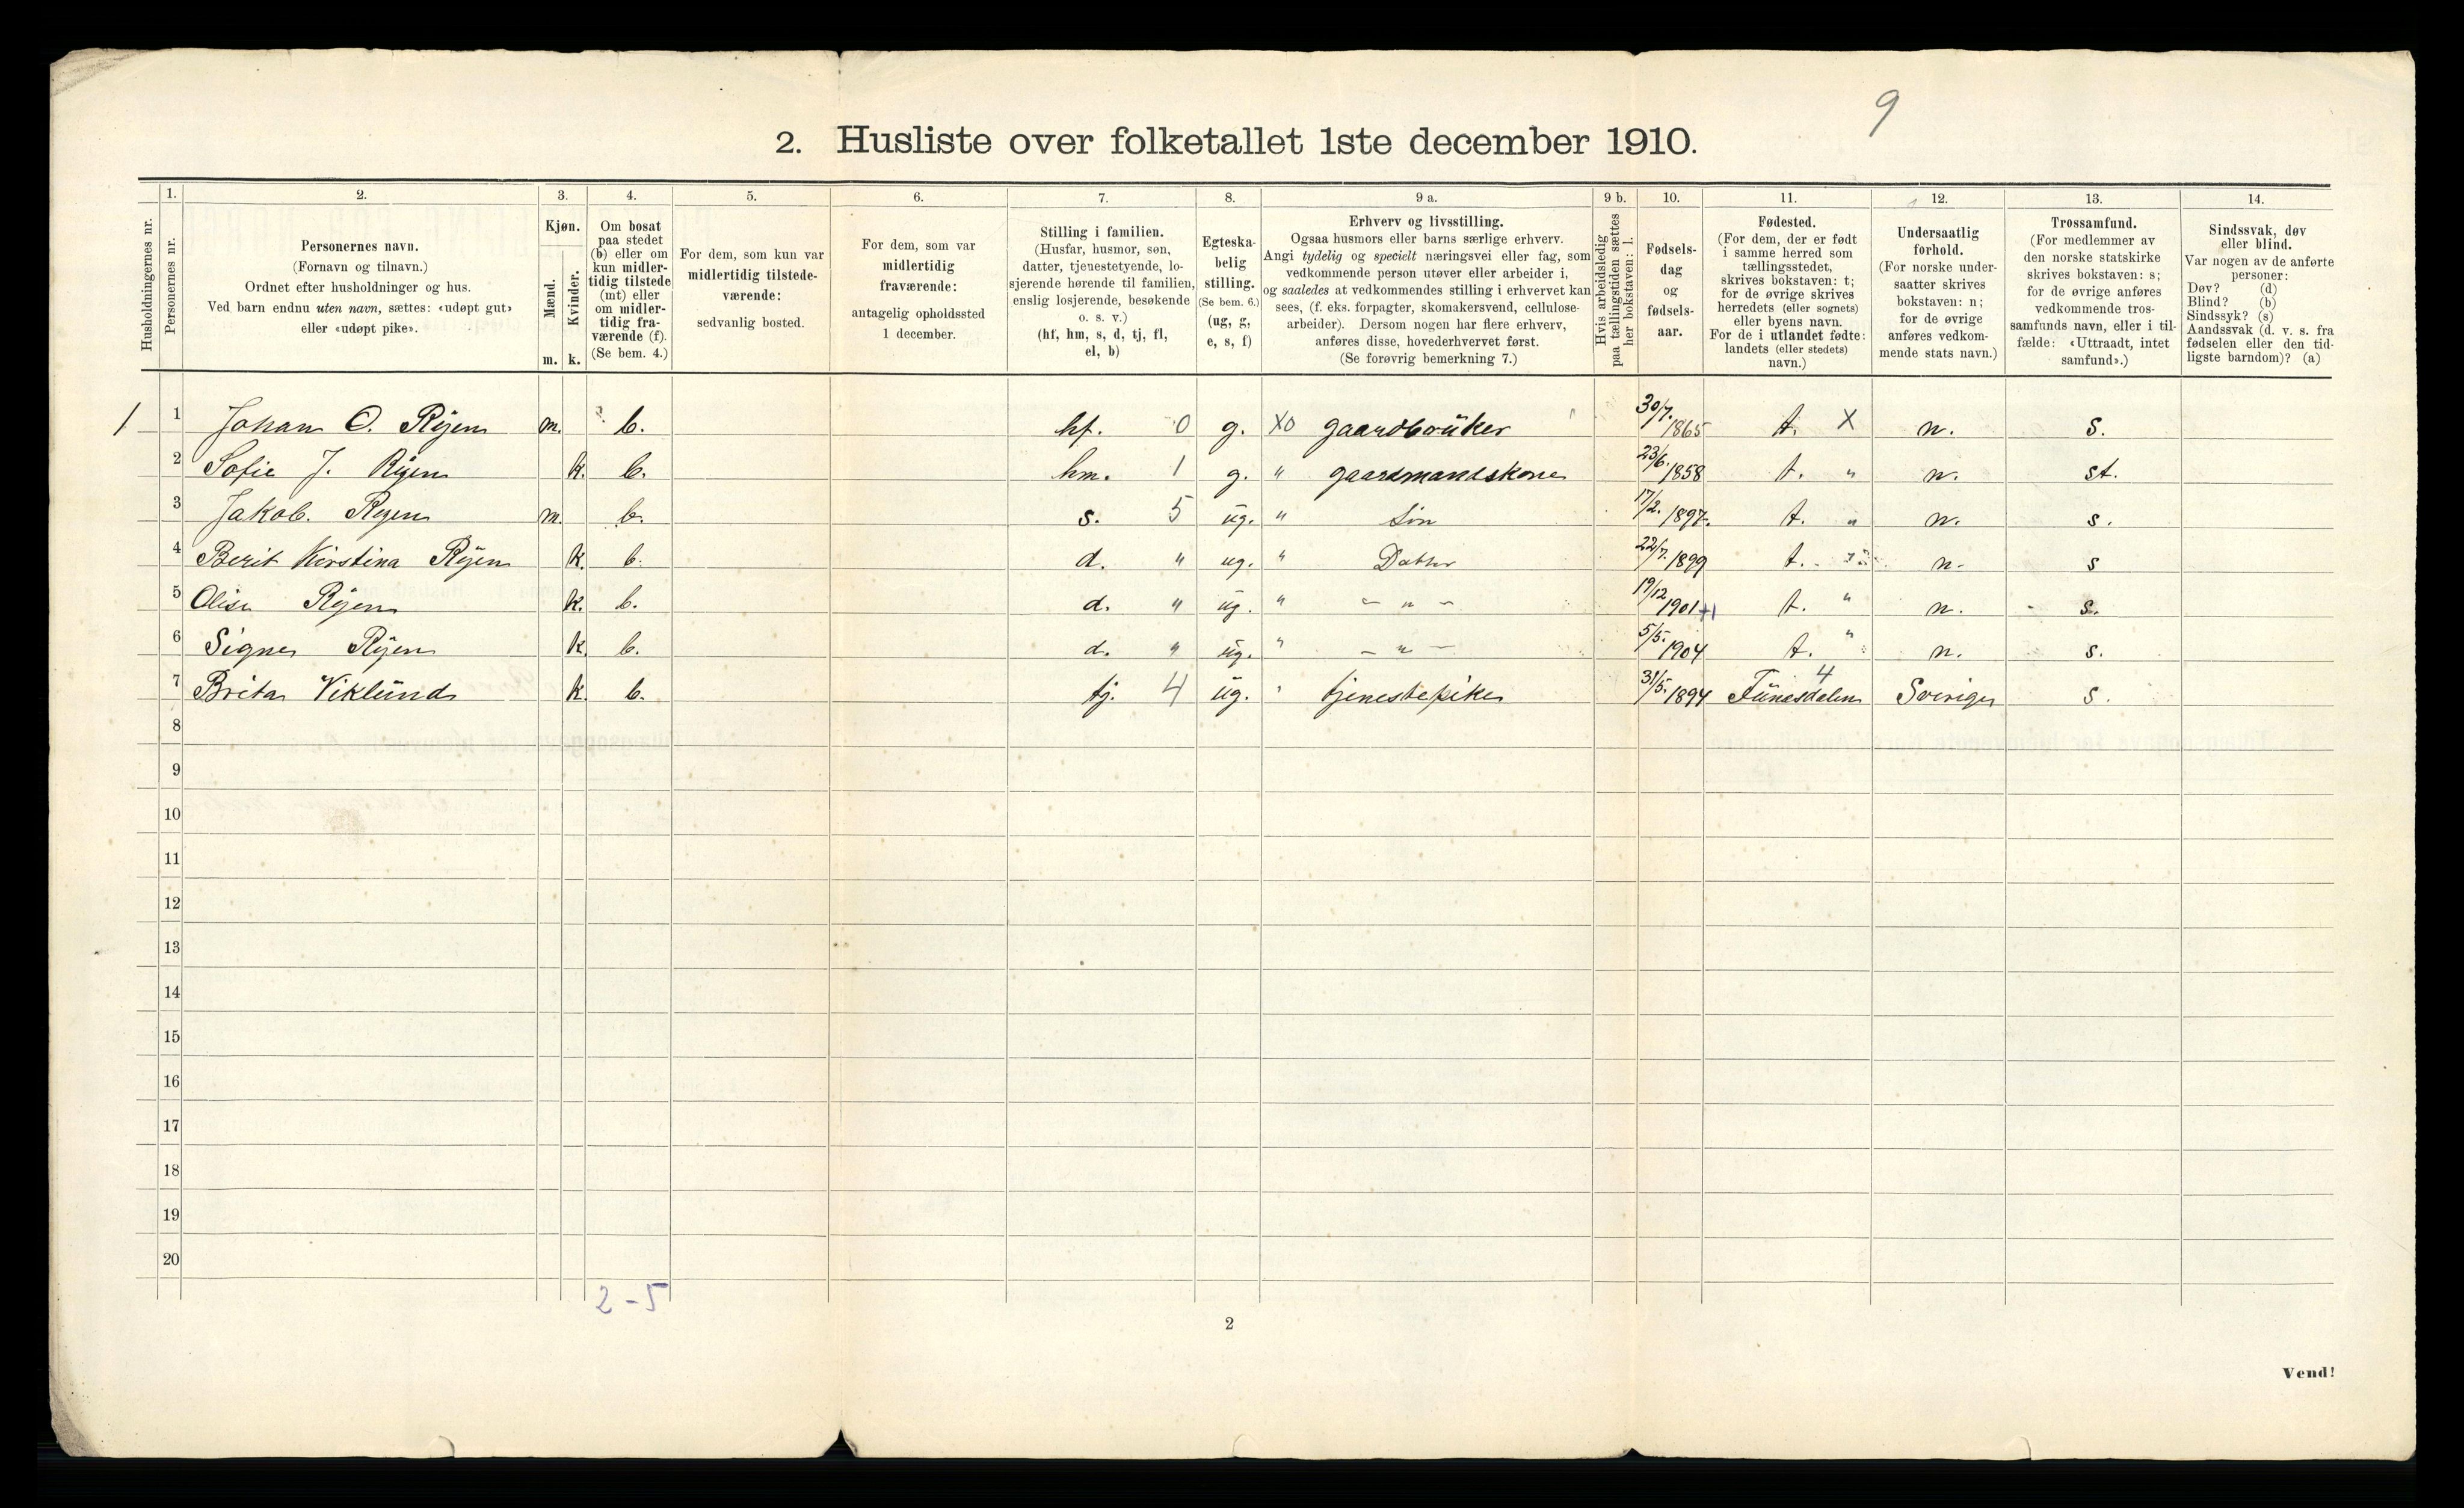 9
2. Husliste over folketallet 1ste december 1910.
Husholdningernes nr.
1. Personernes nr.
2. Personernes navn.
(Fornavn og tilnavn.)
Ordnet efter husholdninger og hus.
Ved barn endnu uten navn, sættes: «udøpt gut»
eller «udøpt pike».
3. Kjøn.
Mænd. m.
Kvinder. k.
4. Om bosat
paa stedet
(b) eller om
kun midler-
tidig tilstede
(mt) eller
om midler-
tidig fra-
værende (f).
(Se bem. 4.)
5. For dem, som kun var
midlertidig tilstede-
værende:
sedvanlig bosted.
6. For dem, som var
midlertidig
fraværende:
antagelig opholdssted
1 december.
7. Stilling i familien.
(Husfar, husmor, søn,
datter, tjenestetyende, lo-
sjerende hørende til familien,
enslig losjerende, besøkende
o. s. v.)
(hf, hm, s, d, tj, fl,
el, b)
8. Egteska-
belig
stilling.
(Se bem. 6.)
(ug, g,
e, s, f)
9 a. Erhverv og livsstilling.
Ogsaa husmors eller barns særlige erhverv.
Angi tydelig og specielt næringsvei eller fag, som
vedkommende person utøver eller arbeider i,
og saaledes at vedkommendes stilling i erhvervet kan
sees, (f. eks. forpagter, skomakersvend, cellulose-
arbeider). Dersom nogen har flere erhverv,
anføres disse, hovederhvervet først.
(Se forøvrig bemerkning 7.)
9 b. Hvis arbeidsledig
paa tællingstiden sættes
her bokstaven: l.
10. Fødsels-
dag
og
fødsels-
aar.
11. Fødested.
(For dem, der er født
i samme herred som
tællingsstedet,
skrives bokstaven: t;
for de øvrige skrives
herredets (eller sognets)
eller byens navn.
For de i utlandet fødte:
landets (eller stedets)
navn.)
12. Undersaatlig
forhold.
(For norske under-
saatter skrives
bokstaven: n;
for de øvrige
anføres vedkom-
mende stats navn.)
13. Trossamfund.
(For medlemmer av
den norske statskirke
skrives bokstaven: s;
for de øvrige anføres
vedkommende tros-
samfunds navn, eller i til-
fælde: «Uttraadt, intet
samfund».)
14. Sindssvak, døv
eller blind.
Var nogen av de anførte
personer:
Døv? (d)
Blind? (b)
Sindssyk? (s)
Aandssvak (d. v. s. fra
fødselen eller den tid-
ligste barndom)? (a)
1 1 Johan O. Rÿen m. b. hf. 0 g. X0 gaardbrüker 30/7. 1865 t. X n. s.
2 Sofie J. Rÿen k. b. hm. 1 g. " gaardmandskone 23/6. 1858 t. " n. st.
3 Jakob. Ryen m. b. s. 5 üg. " Sön 17/2. 1897. t. " n. s.
4 Berit Kirstina Rÿen k. b. d. " ug. " Datter 22/7. 1899 t. n. s
5 Olise Rÿen k. b. d. " üg. " – " – 19/12 1901 t. " n. s.
6 Signe Rÿen k. b. d. " üg. " – " – 5/5. 1904 t. " n. s.
7 Brita Viklünd k. b. tj. 4 üg. " tjenestepike 31/5. 1894 Fünesdalen 4 Sverige s.
8
9
10
11
12
13
14
15
16
17
18
19
20
2 - 5
2
Vend!